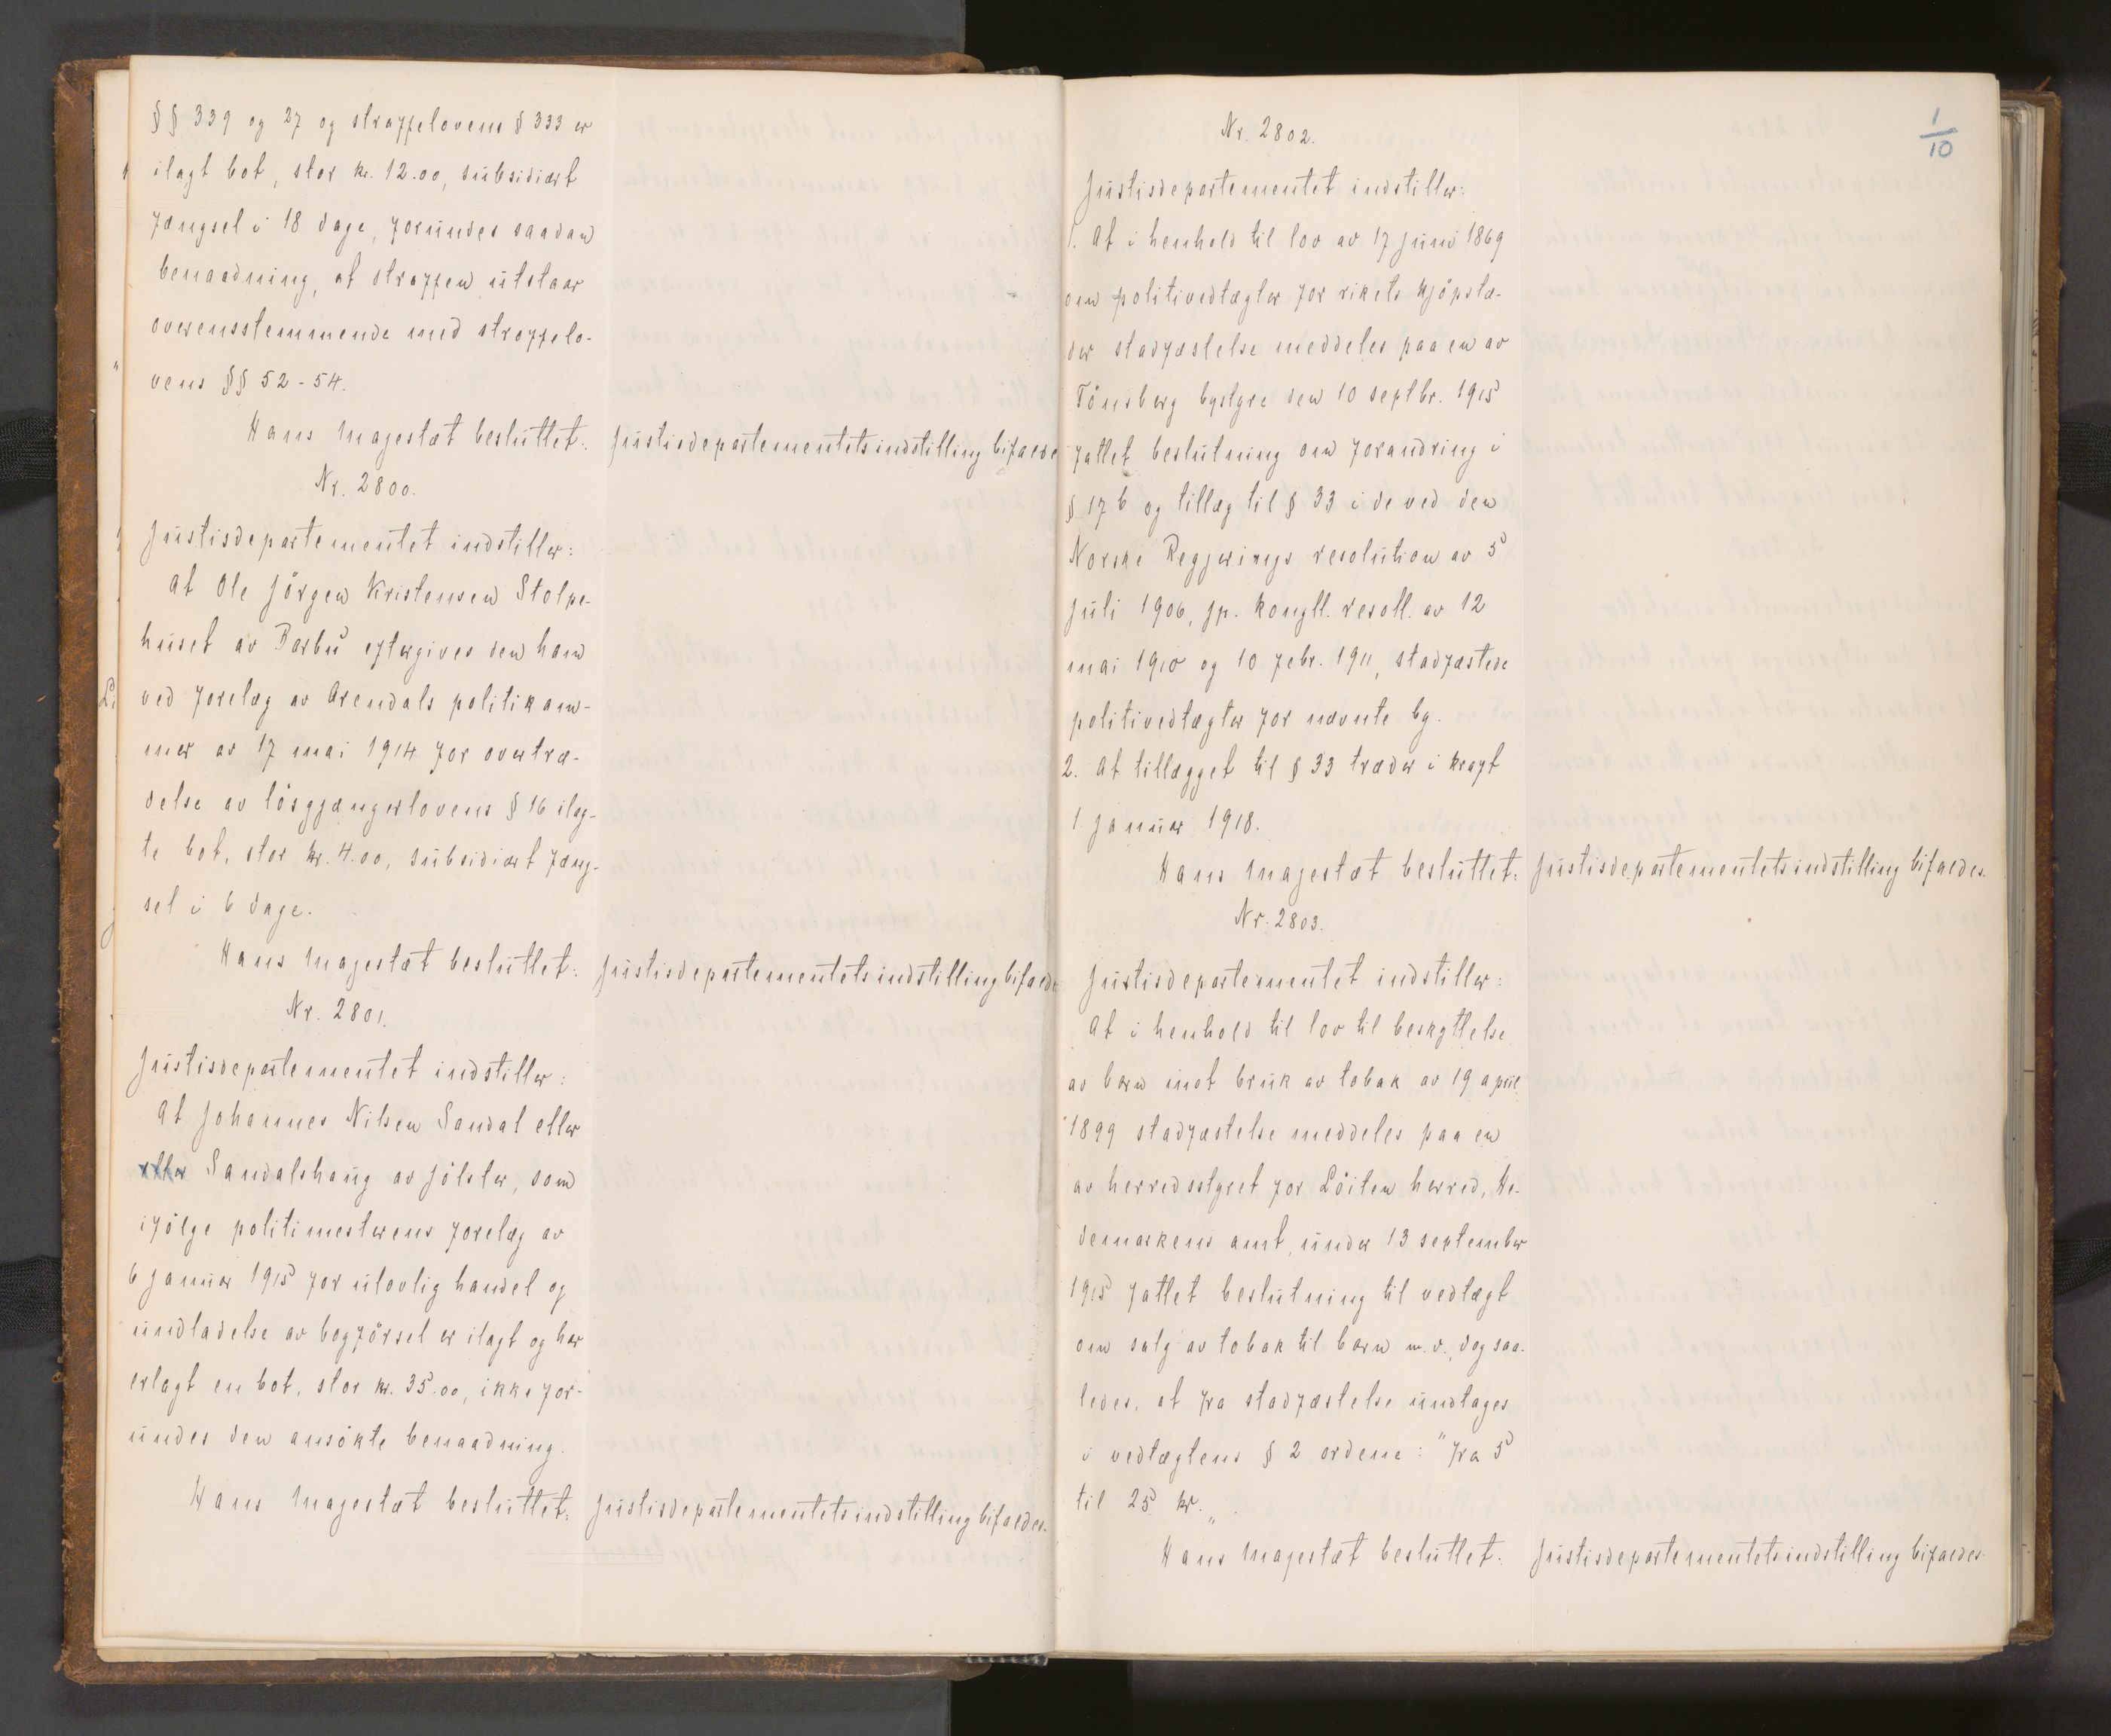 §§ 339 og 27 og straffelovens § 333 er
ilagt bot, stor kr. 12.00, subsidiært
fængsel i 18 dage, forundes saadan
benaadning, at straffen utstaar
overensstemmende med straffelo-
vens §§ 52-54.
Hans Majestæt besluttet: Justisdepartementets indstilling bifaldes
Nr. 2800.
Justisdepartementet indstiller:
At Ole Jörgen Kristensen Stolpe-
huset av Barbu eftergives den ham
ved forelæg av Arendals politikam-
mer av 17 mai 1914 for overtræ-
delse av lösgjængerlovens § 16 ilag-
te bot, stor kr. 4.00, subsidiært fæng-
sel i 6 dage.
Hans Majestæt besluttet: Justisdepartementets indstilling bifaldes
Nr. 2801.
Justisdepartementet indstiller:
At Johannes Nilsen Sandal eller
eller Sandalshaug av Jölster, som
ifölge politimesterens forelæg av
6 januar 1915 for ulovlig handel og
undladelse av bogförsel er ilagt og har
erlagt en bot, stor kr. 35.00, ikke for-
undes den ansökte benaadning.
Hans Majestæt besluttet: Justisdepartementets indstilling bifaldes.
1/10
Nr. 2802.
Justisdepartementet indstiller:
1. At i henhold til lov av 17 juni 1869
om politivedtægter for rikets kjöpstæ-
der stadfæstelse meddeles paa en av
Tönsberg bystyre den 10 septbr. 1915
fattet beslutning om forandring i
§ 17 b og tillæg til § 33 i de ved den
Norske Regjerings resolution av 5
juli 1906, jfr. kongll. resoll. av 12
mai 1910 og 10 febr. 1911, stadfæstede
politivedtægter for nævnte by.
2. At tillægget til § 33 træder i kraft
1 januar 1918.
Hans Majestæt besluttet: Justisdepartementets indstilling bifaldes.
Nr. 2803.
Justisdepartementet indstiller:
At i henhold til lov til beskyttelse
av børn imot bruk av tobak av 19 april
1899 stadfæstelse meddeles paa en
av herredsstyret for Löiten herred, He-
demarkens amt, under 13 september
1915 fattet beslutning til vedtægt
om salg av tobak til børn m.v., dog saa-
ledes, at fra stadfæstelse undtages
i vedtægtens § 2 ordene: "fra 5
til 25 kr.„.
Hans Majestæt besluttet: Justisdepartementets indstilling bifaldes